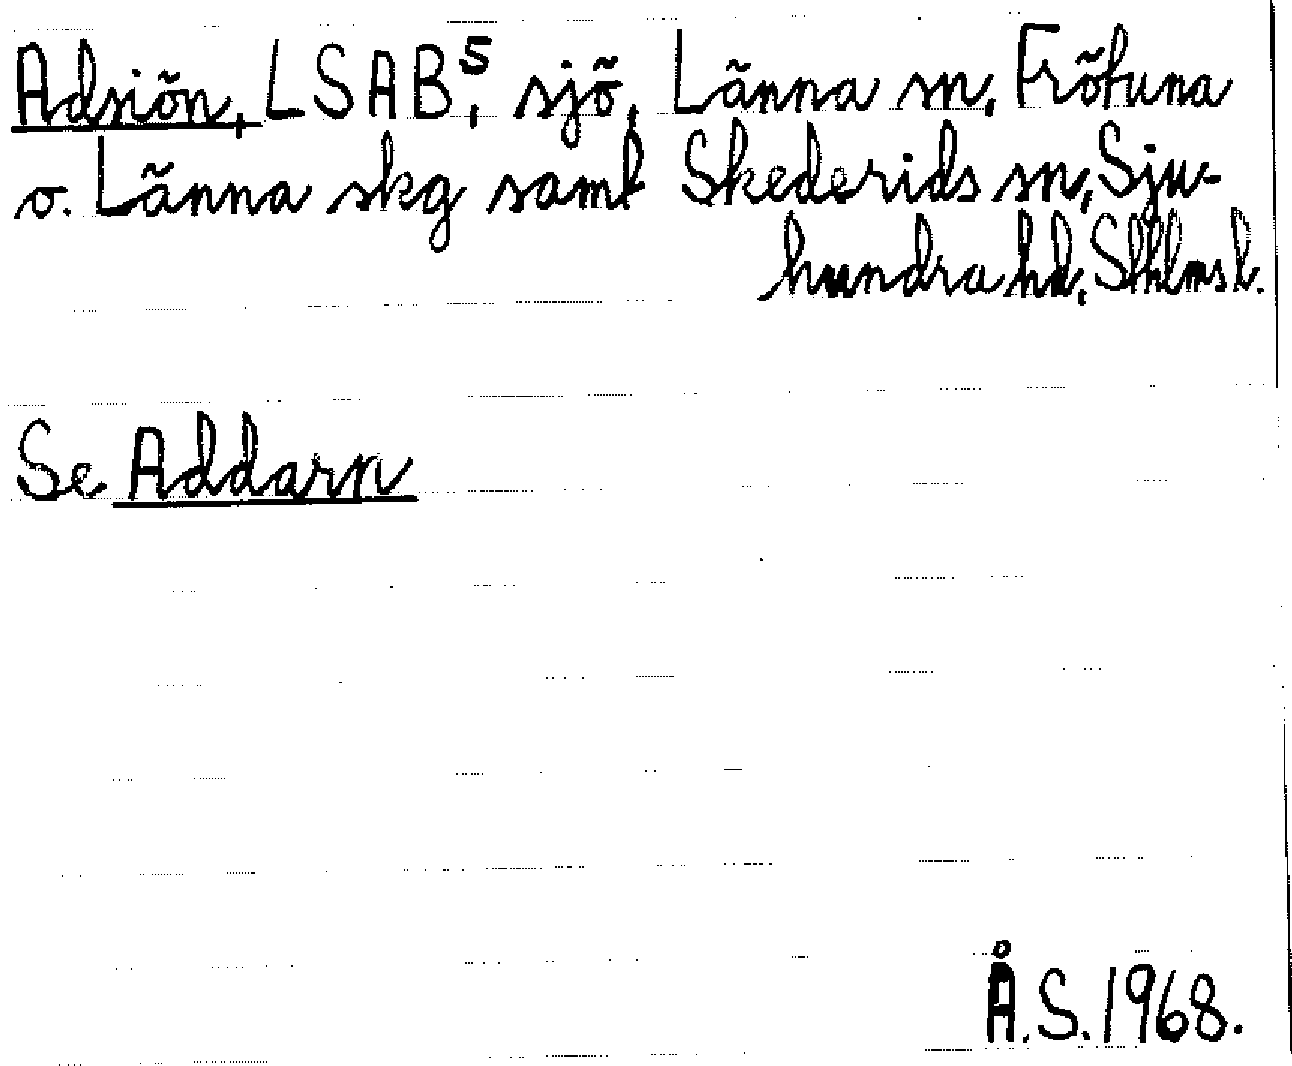 Adsiön, LSAB⁵, sjö, Länna sn, Frötuna
o. Länna skg samt Skederids sn, Sju-
hundra hd, Sthlms l.
Se Addarn
Å.S. 1968.